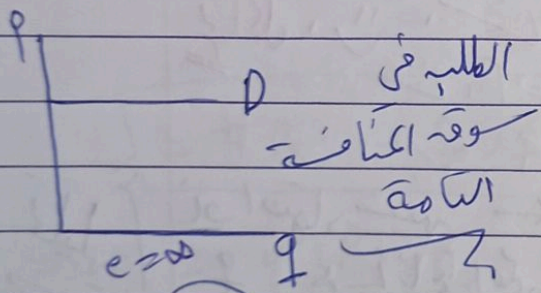 P
D
الطلب في
سوق المنافسة
التامة
e=∞ q